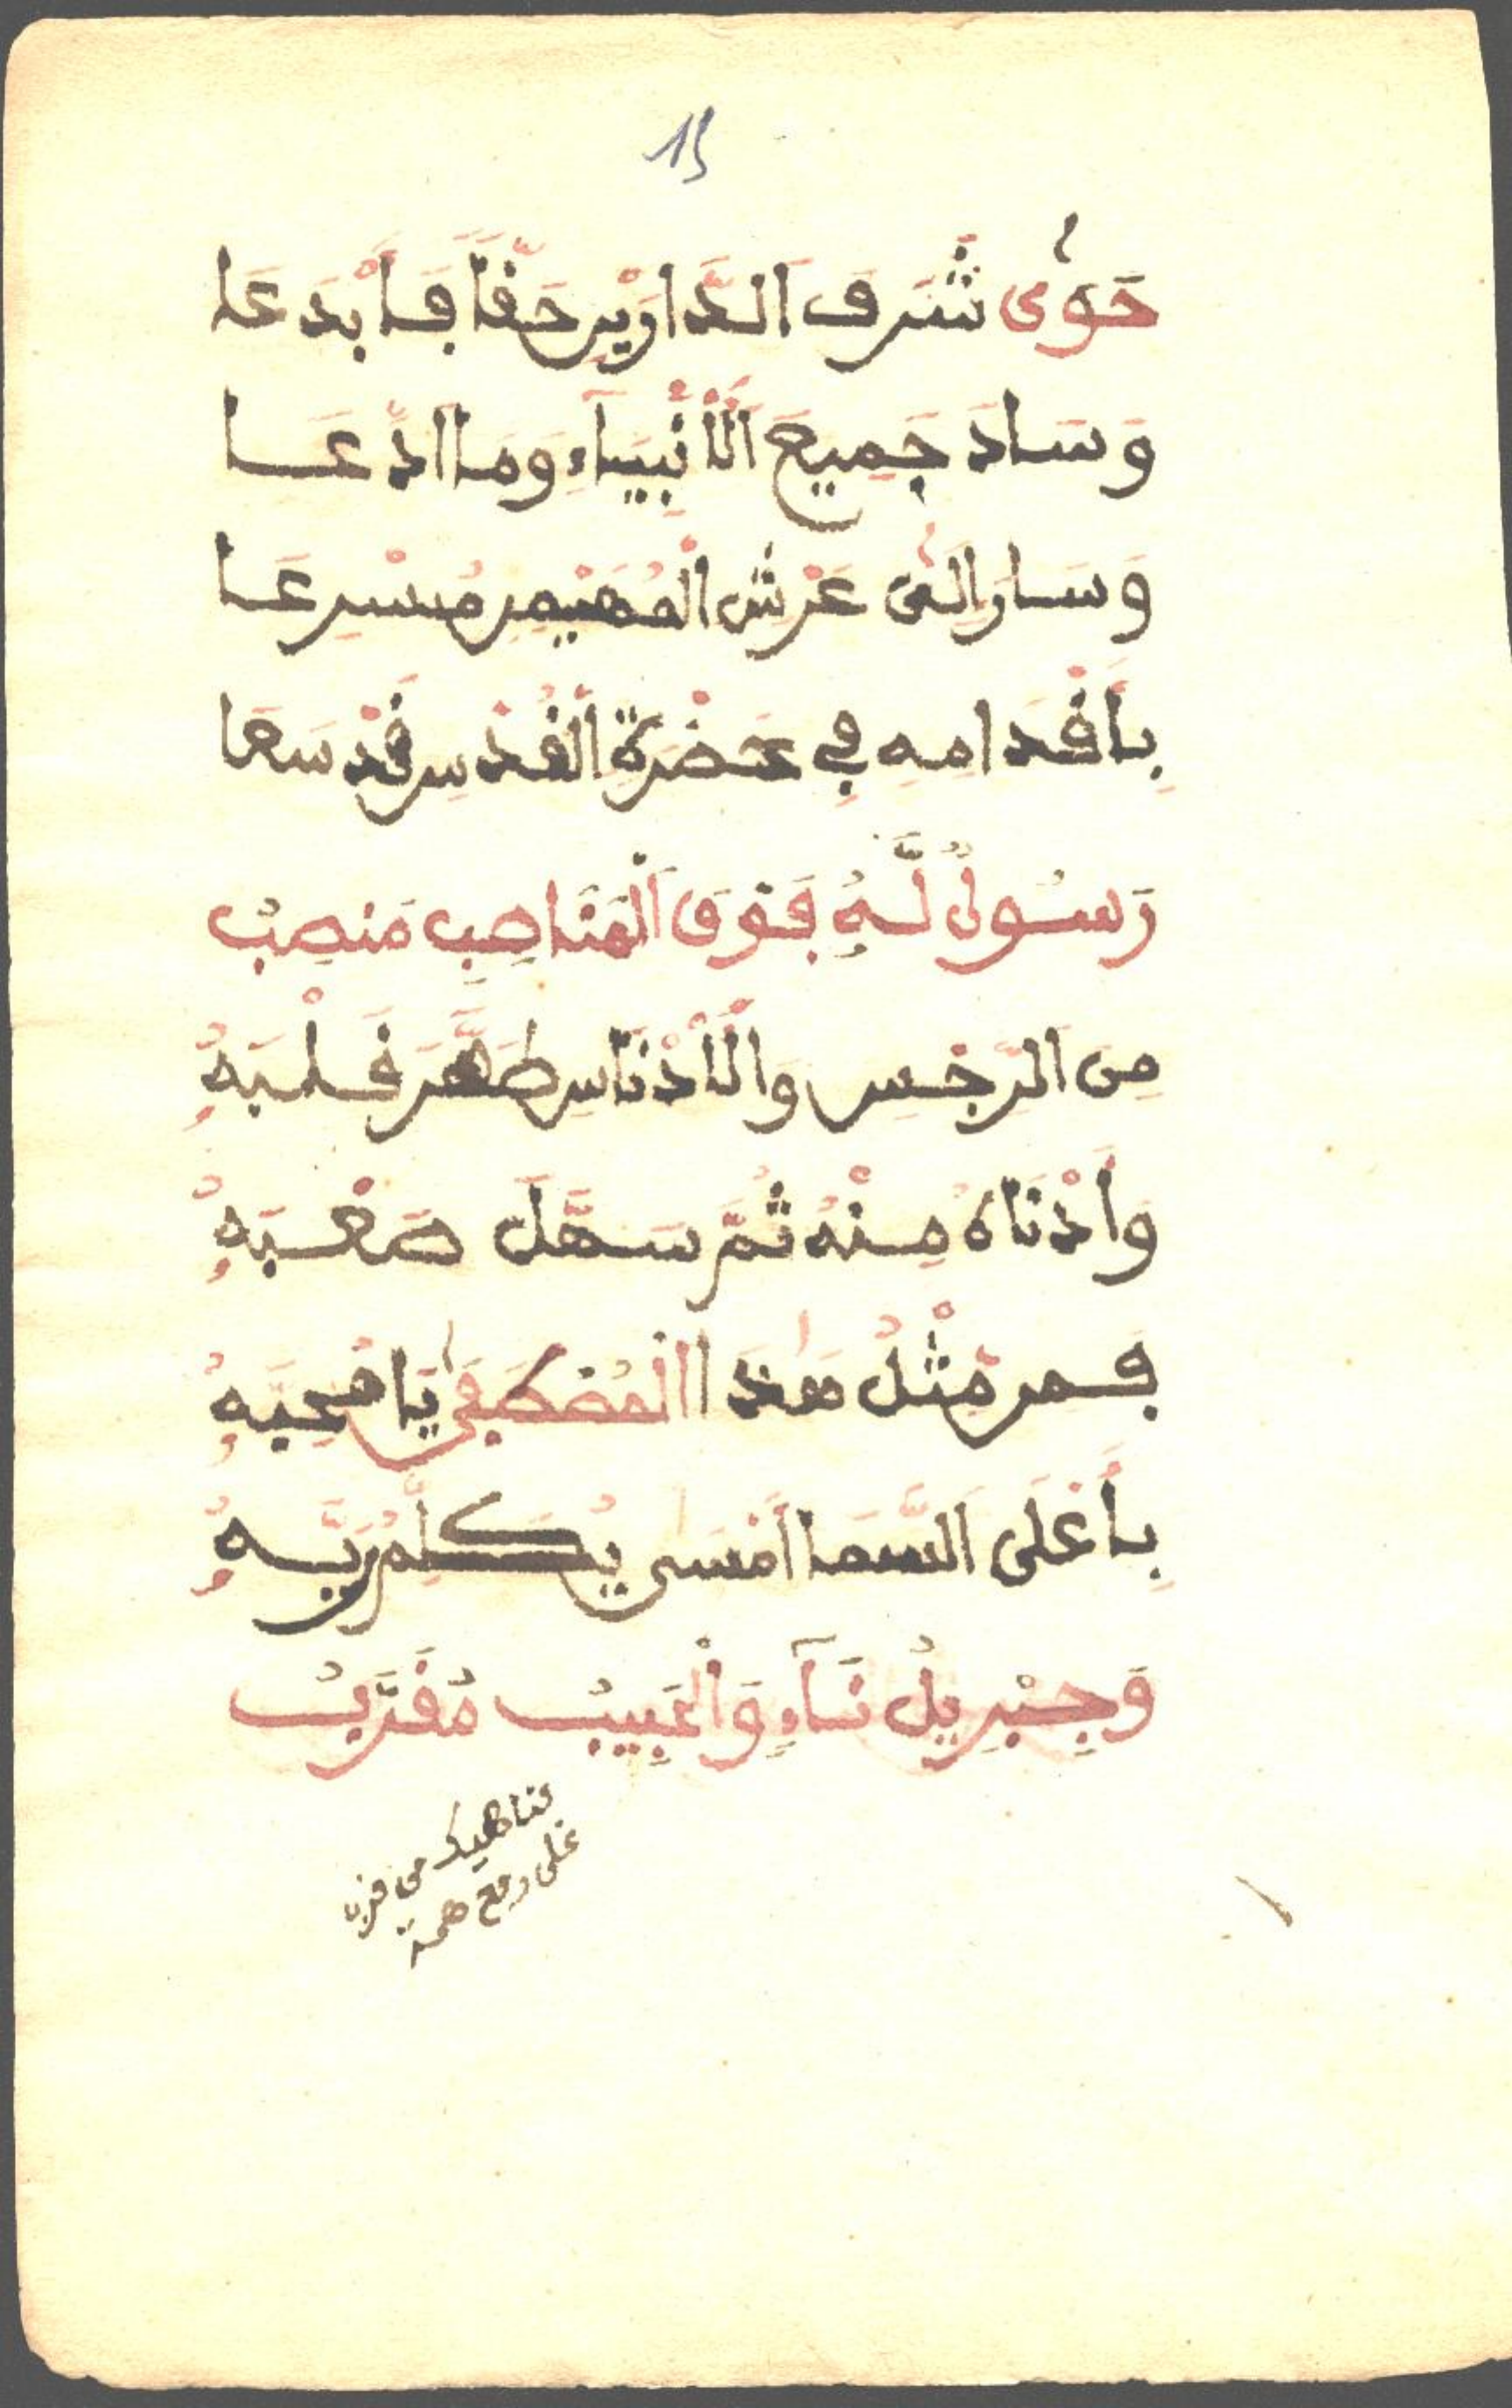 15
حَوٰى شَرَفَ الدَّارَيْنِ حَقًّا فَأَبْدَعَا
وَسَادَ جَمِيعَ الْأَنْبِيَآءِ وَمَا ادَّعَا
وَسَارَ إِلَىٰ عَرْشِ الْمُهَيْمِنِ مُسْرِعَا
بِأَقْدَامِهِ فِي حَضْرَةِ الْقُدْسِ قَدْ سَعَا
رَسُولٌ لَّهُ فَوْقَ الْمَنَاصِبِ مَنصِبُ
مِنَ الرِّجْسِ وَالْأَدْنَاسِ طَهَّرَ قَلْبَهُ
وَأَدْنَاهُ مِنْهُ ثُمَّ سَهَّلَ صَعْبَهُ
فَمَن مِّثْلُ هَٰذَا الْمُصْطَفَىٰ يَا مُحِبَّهُ
بِأَعْلَى السَّمَا أَمْسَى يُكَلِّمُ رَبَّهُ
وَجِبْرِيلُ نَآءٍ وَالْحَبِيبُ مُقَرَّبُ
فناهيك من قرب
على رفع همة